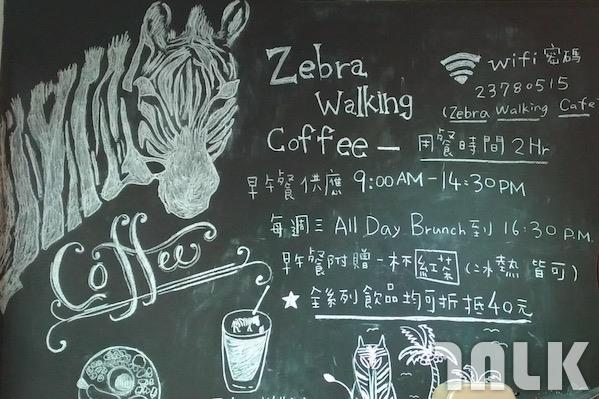 Zebra
Walking
Coffee — 用餐時間2Hr
wifi 密碼
23780515
(Zebra Walking Cafe)
早午餐供應 9:00AM-14:30PM
每週三 All Day Brunch到16:30P.M.
早午餐附贈一杯紅茶(冰熱皆可)
★ 全系列飲品均可折抵40元
Coffee
MLK